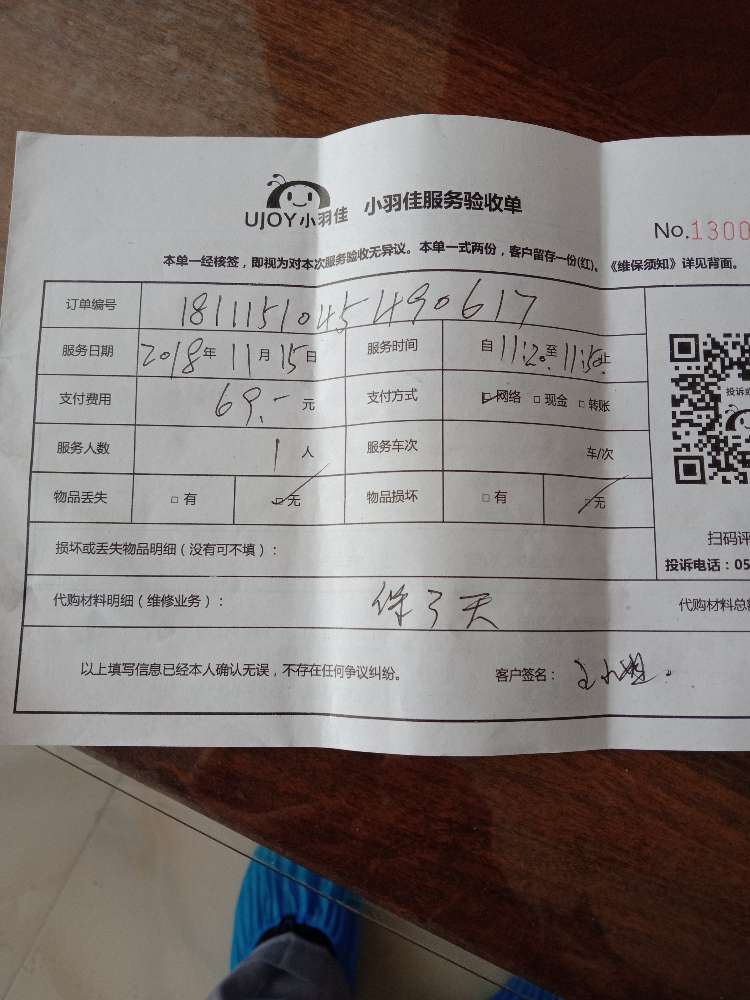 UJOY小羽佳 小羽佳服务验收单
No.1300
本单一经核签，即视为对本次服务验收无异议。本单一式两份，客户留存一份(红)。《维保须知》详见背面。
订单编号 1811151045490617
服务日期 2018年 11月 15日 服务时间 自 11:20至 11:50止
支付费用 69.- 元 支付方式 网络 现金 转账
服务人数 1 人 服务车次 车/次
物品丢失 有 无 物品损坏 有 无
扫码评
损坏或丢失物品明细（没有可不填）：
投诉电话：05
代购材料明细（维修业务）： 保3天
代购材料总
以上填写信息已经本人确认无误，不存在任何争议纠纷。 客户签名：